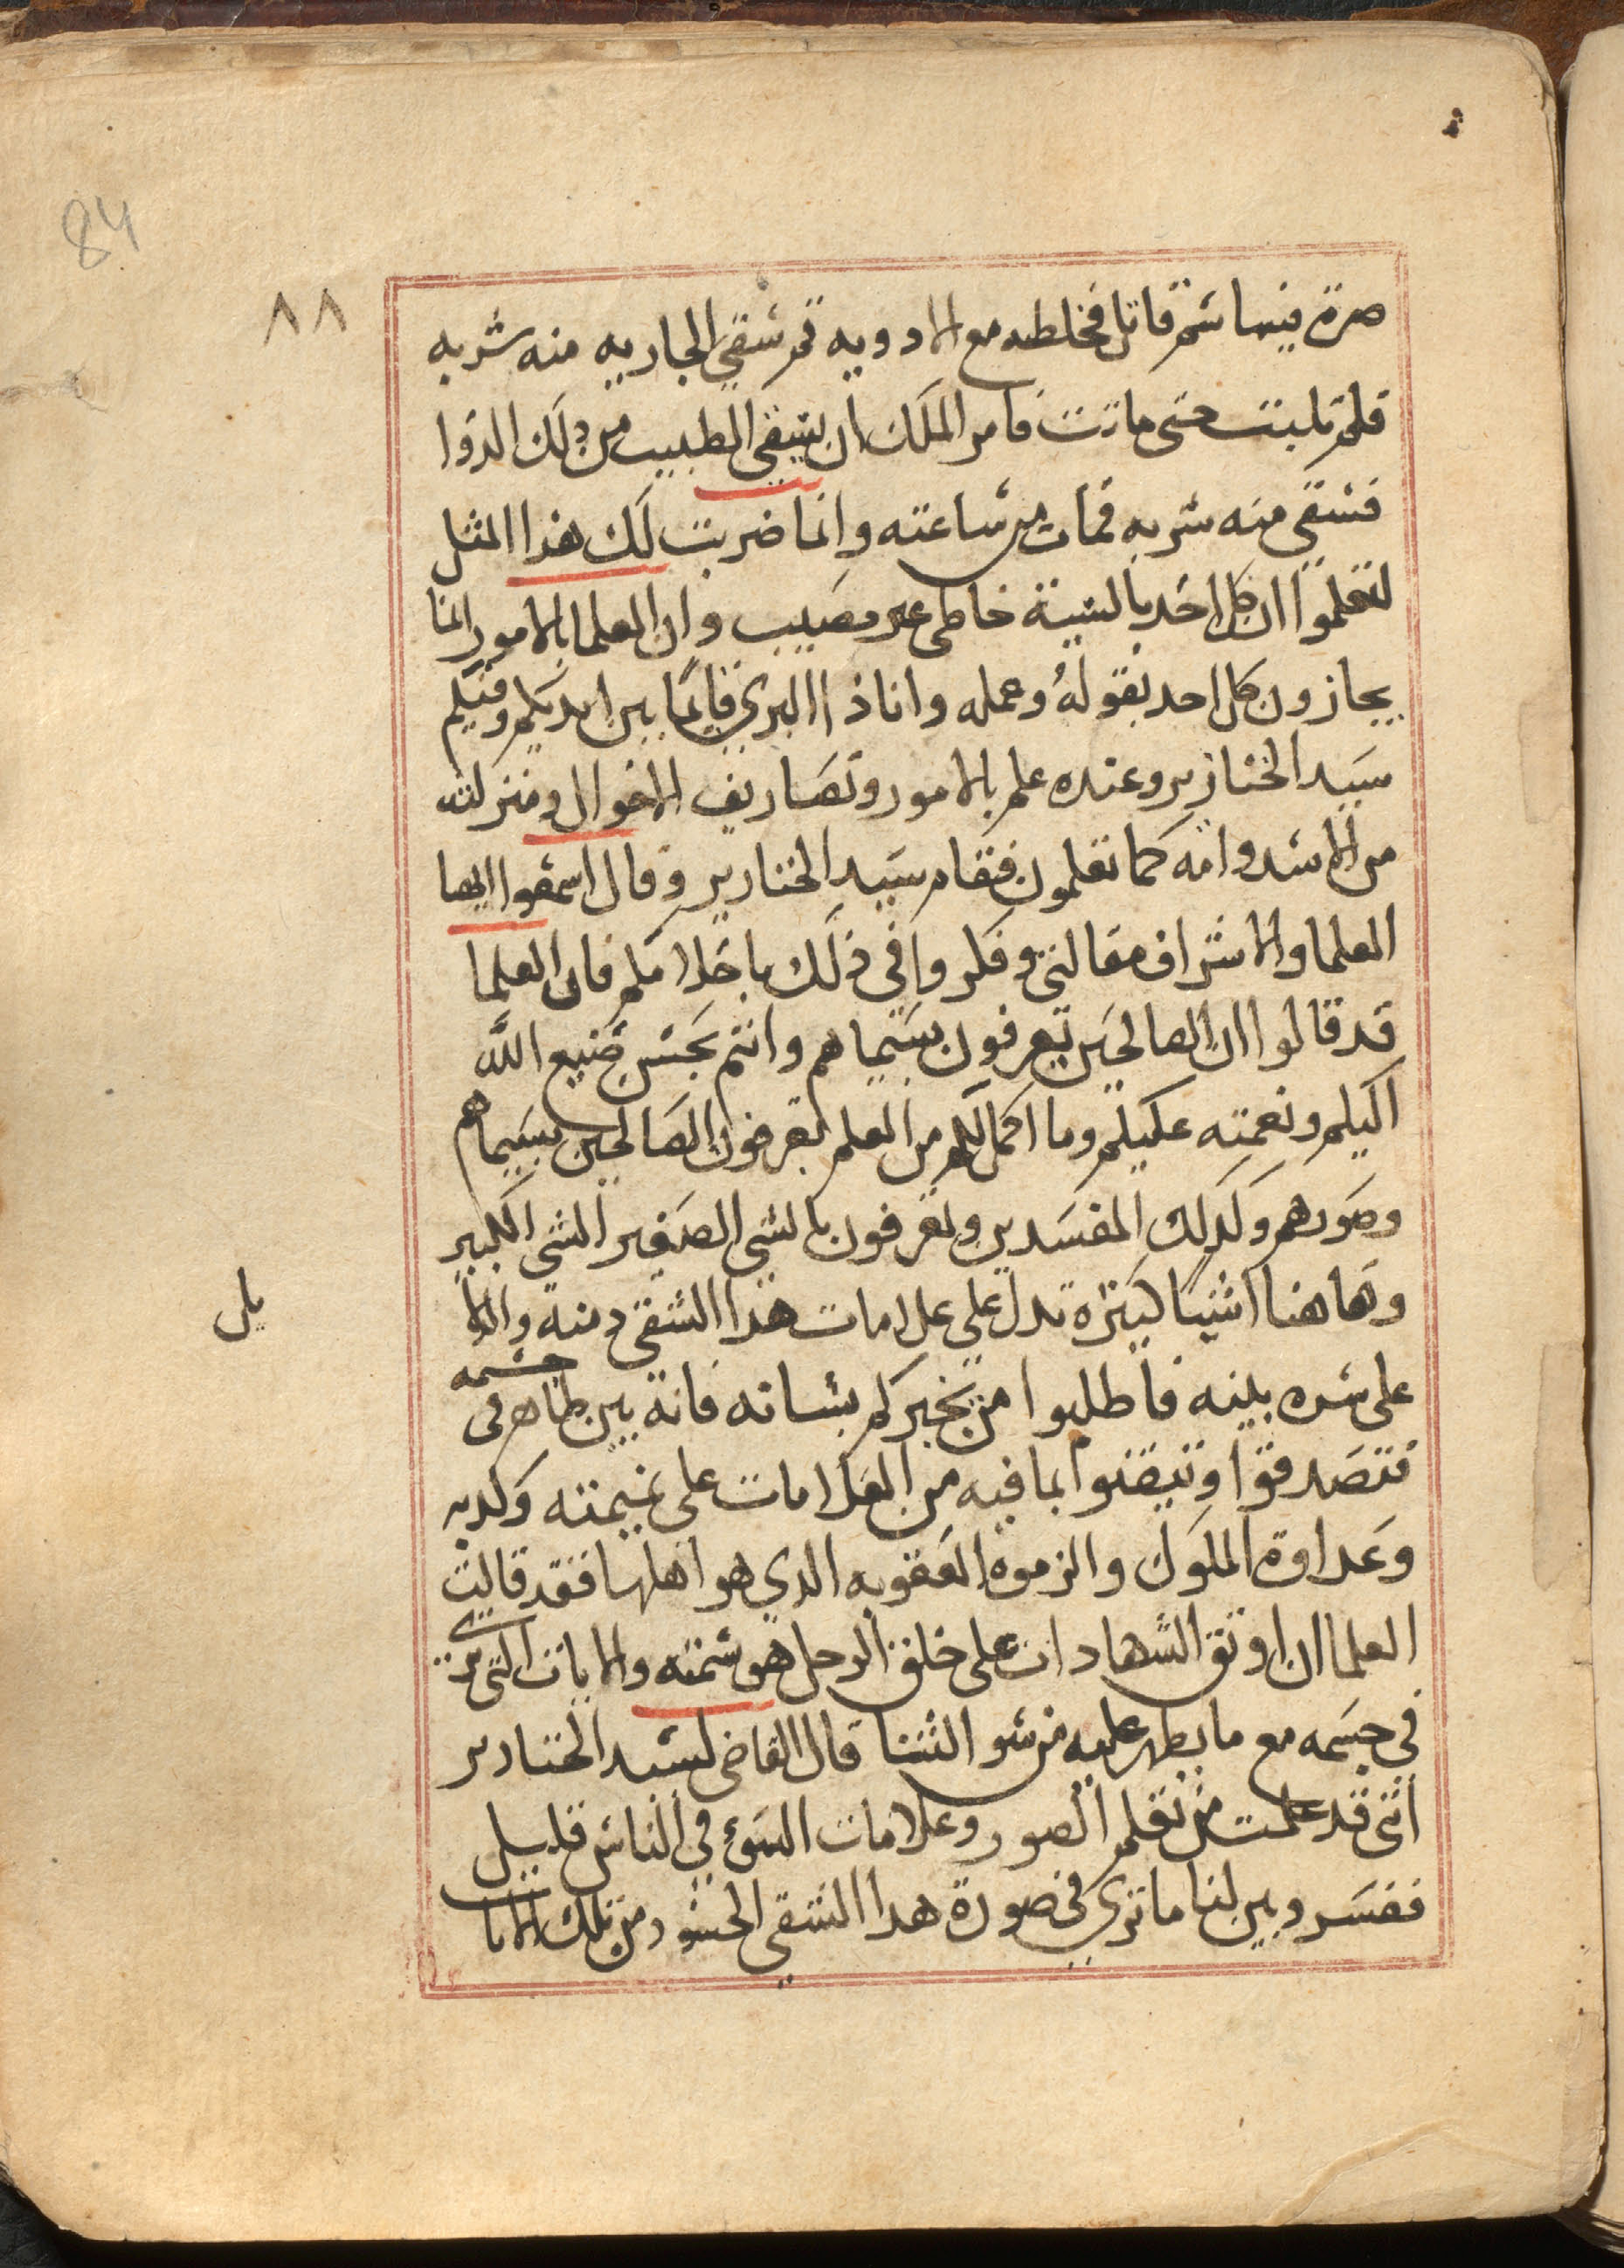 84
٨٨
صرة فيها سم قاتل فخلطه مع الادويه ثم سقي الجاريه منه شربه
فلم تلبث حتى ماتت فامر الملك ان يسقي الطبيب من ذلك الدوا
فسقي منه شربه فمات من ساعته وانما ضربت لك هذا المثل
لتعلموا ان كل احد بالشبهة خاطي غير مصيب وان العلما بالامور انما
يجازون كل احد بقوله وعمله وانا ذا البري قايمًا بين ايديكم وفيكم
سيد الخنازير وعنده علم بالامور وتصاريف الاحوال ومنزلته
من الاسد وامه كما تعلمون فقام سيد الخنازير وقال اسمعوا ايها
العلما والاشراف مقالتي وفكروا في ذلك باحلامكم فان العلما
قد قالوا ان الصالحين يعرفون بسيماهم وانتم بحسن صنيع الله
اليكم ونعمته عليكم وما اكمل لكم من العلم تعرفون الصالحين بسيماهم
وصورهم وكذلك المفسدين وتعرفون بالشي الصغير الشي الكبير
وهاهنا اشيا كثيره تدل على علامات هذا الشقي دمنه والدلا
يل
على شره بينه فاطلبوا من يخبركم بشانه فانه بين ظاهر في جسمه
فتصدقوا وتيقنوا بما فيه من العلامات على نميمته وكذبه
وعداوة الملوك والزموه العقوبه الذي هو اهلها فقد قالت
العلما ان اوثق الشهادات على خلق الرجل هو سمته والايات التي تري
في جسمه مع ما يظهر عليه من سو الثنا قال القاضي لسيد الخنازير
انني قد علمت من تعلم الصور وعلامات السوء في الناس قليل
ففسر وبين لنا ما تري في صورة هذا الشقي الحسود من تلك الايات